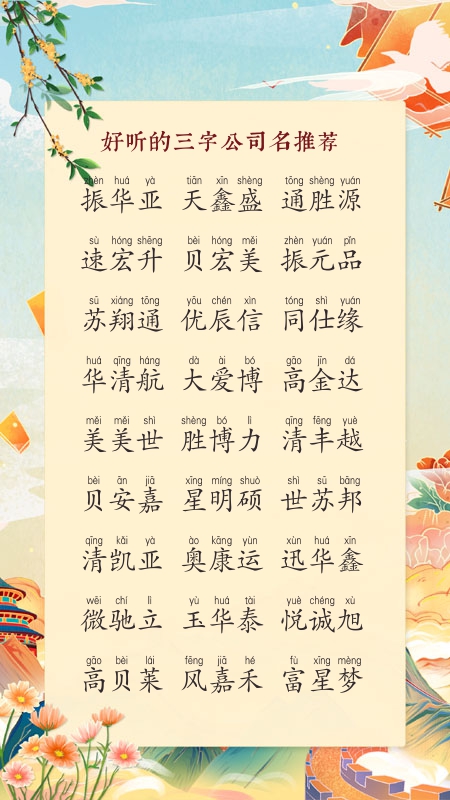 好听的三字公司名推荐
zhèn huá yà tiān xīn shèng tōng shèng yuán
振华亚 天鑫盛 通胜源
sù hóng shēng bèi hóng měi zhèn yuán pǐn
速宏升 贝宏美 振元品
sū xiáng tōng yōu chén xìn tóng shì yuán
苏翔通 优辰信 同仕缘
huá qīng háng dà ài bó gāo jīn dá
华清航 大爱博 高金达
měi měi shì shèng bó lì qīng fēng yuè
美美世 胜博力 清丰越
bèi ān jiā xīng míng shuò shì sū bāng
贝安嘉 星明硕 世苏邦
qīng kǎi yà ào kāng yùn xùn huá xīn
清凯亚 奥康运 迅华鑫
wēi chí lì yù huá tài yuè chéng xù
微驰立 玉华泰 悦诚旭
gāo bèi lái fēng jiā hé fù xīng mèng
高贝莱 风嘉禾 富星梦